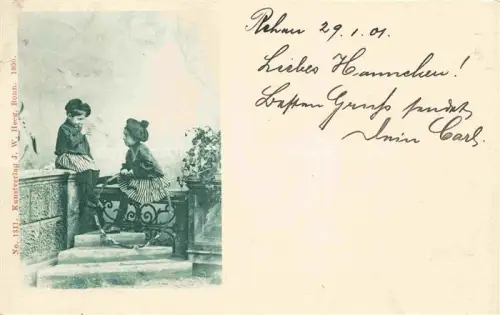 Rehau 29.1.01.
Liebes Hannchen!
Besten Gruß sendet
Dein Carl.
No. 1331. Kunstverlag J. W. Hoeg, Bonn. 1899.